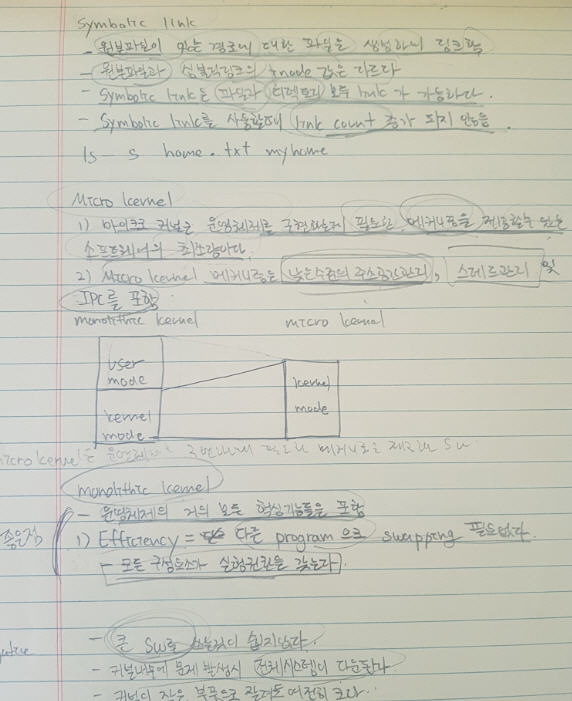 Symbolic link
- 원본파일이 있는 경로에 대한 파일을 생성하여 링크함
- 원본파일과 심볼릭링크의 inode 값은 다르다
- Symbolic link는 파일과 디렉토리 모두 link가 가능하다.
- Symbolic link를 사용할때 link count 증가 되지 않음
ls - s home.txt myhome
Micro kernel
1) 마이크로 커널은 운영체제를 구현하는데 필요한 메커니즘을 제공할수 있는
소프트웨어의 최소량이다.
2) Micro kernel 메커니즘은 낮은수준의 주소공간관리, 스레드관리 및
IPC를 포함
monolithic kernel micro kernel
user
mode
kernel
mode
kernel
mode
micro kernel은 운영체제를 구현하는데 필요한 메커니즘을 제공 SW
monolithic kernel
- 운영체제의 거의 모든 핵심기능들을 포함
좋은점 1) Efficiency = 다른 program으로 swapping 필요없다.
- 모든 구성요소가 실행권한을 갖는다
- 큰 SW로 쉽지않다.
- 커널내부에 문제 발생시 전체시스템이 다운된다
- 커널이 작은 부품으로 여전히 크다.